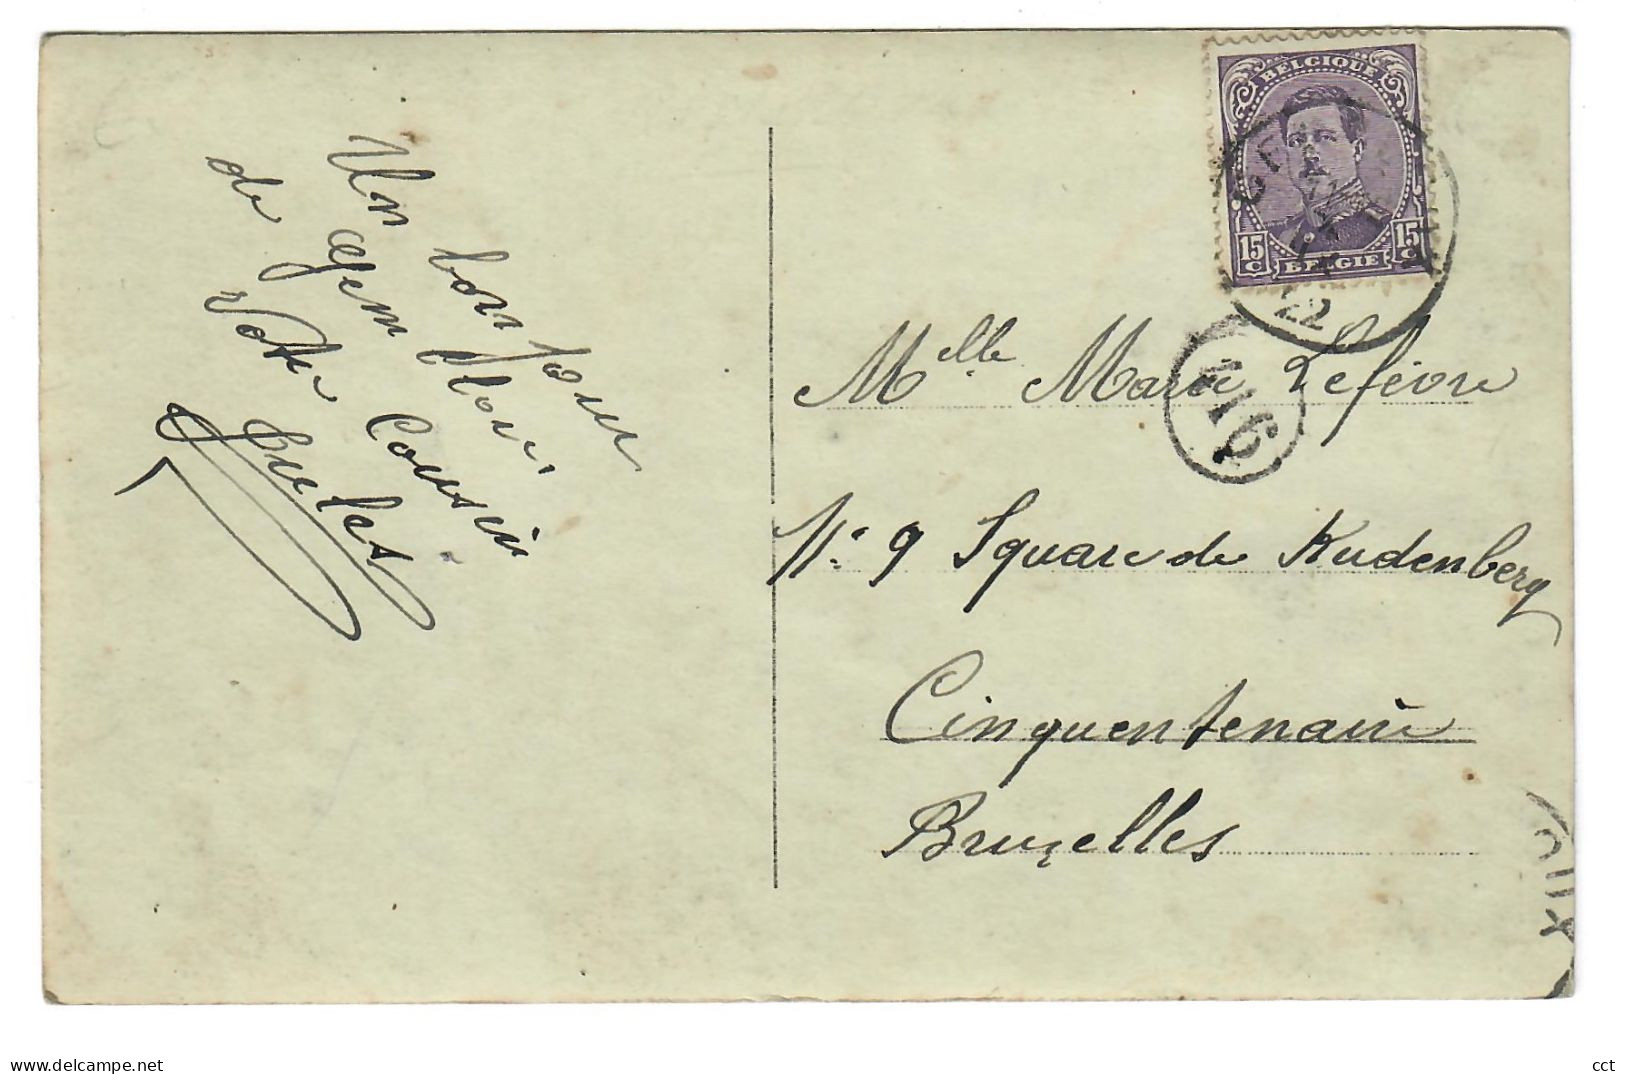 Un bonjour
de
Votre Cousin
Jules
BELGIQUE
15 C
15 C
BELGIE
22
416
Mlle Marie Lefèvre
N° 9 Square de Rudenberg
Cinquentenaire
Bruxelles
www.delcampe.net
cct